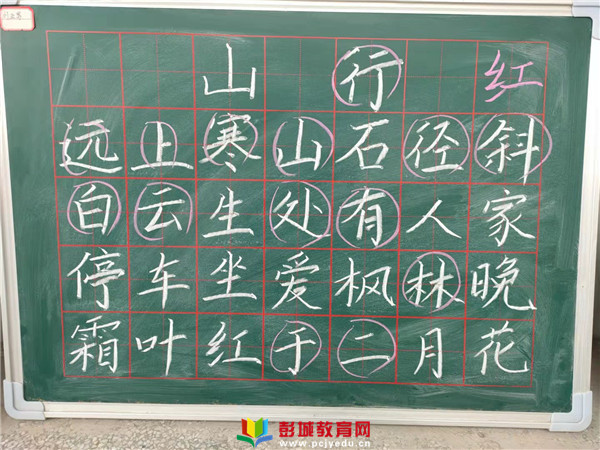 山行 红
远上寒山石径斜
白云生处有人家
停车坐爱枫林晚
霜叶红于二月花
彭城教育网
www.pcjyedu.cn